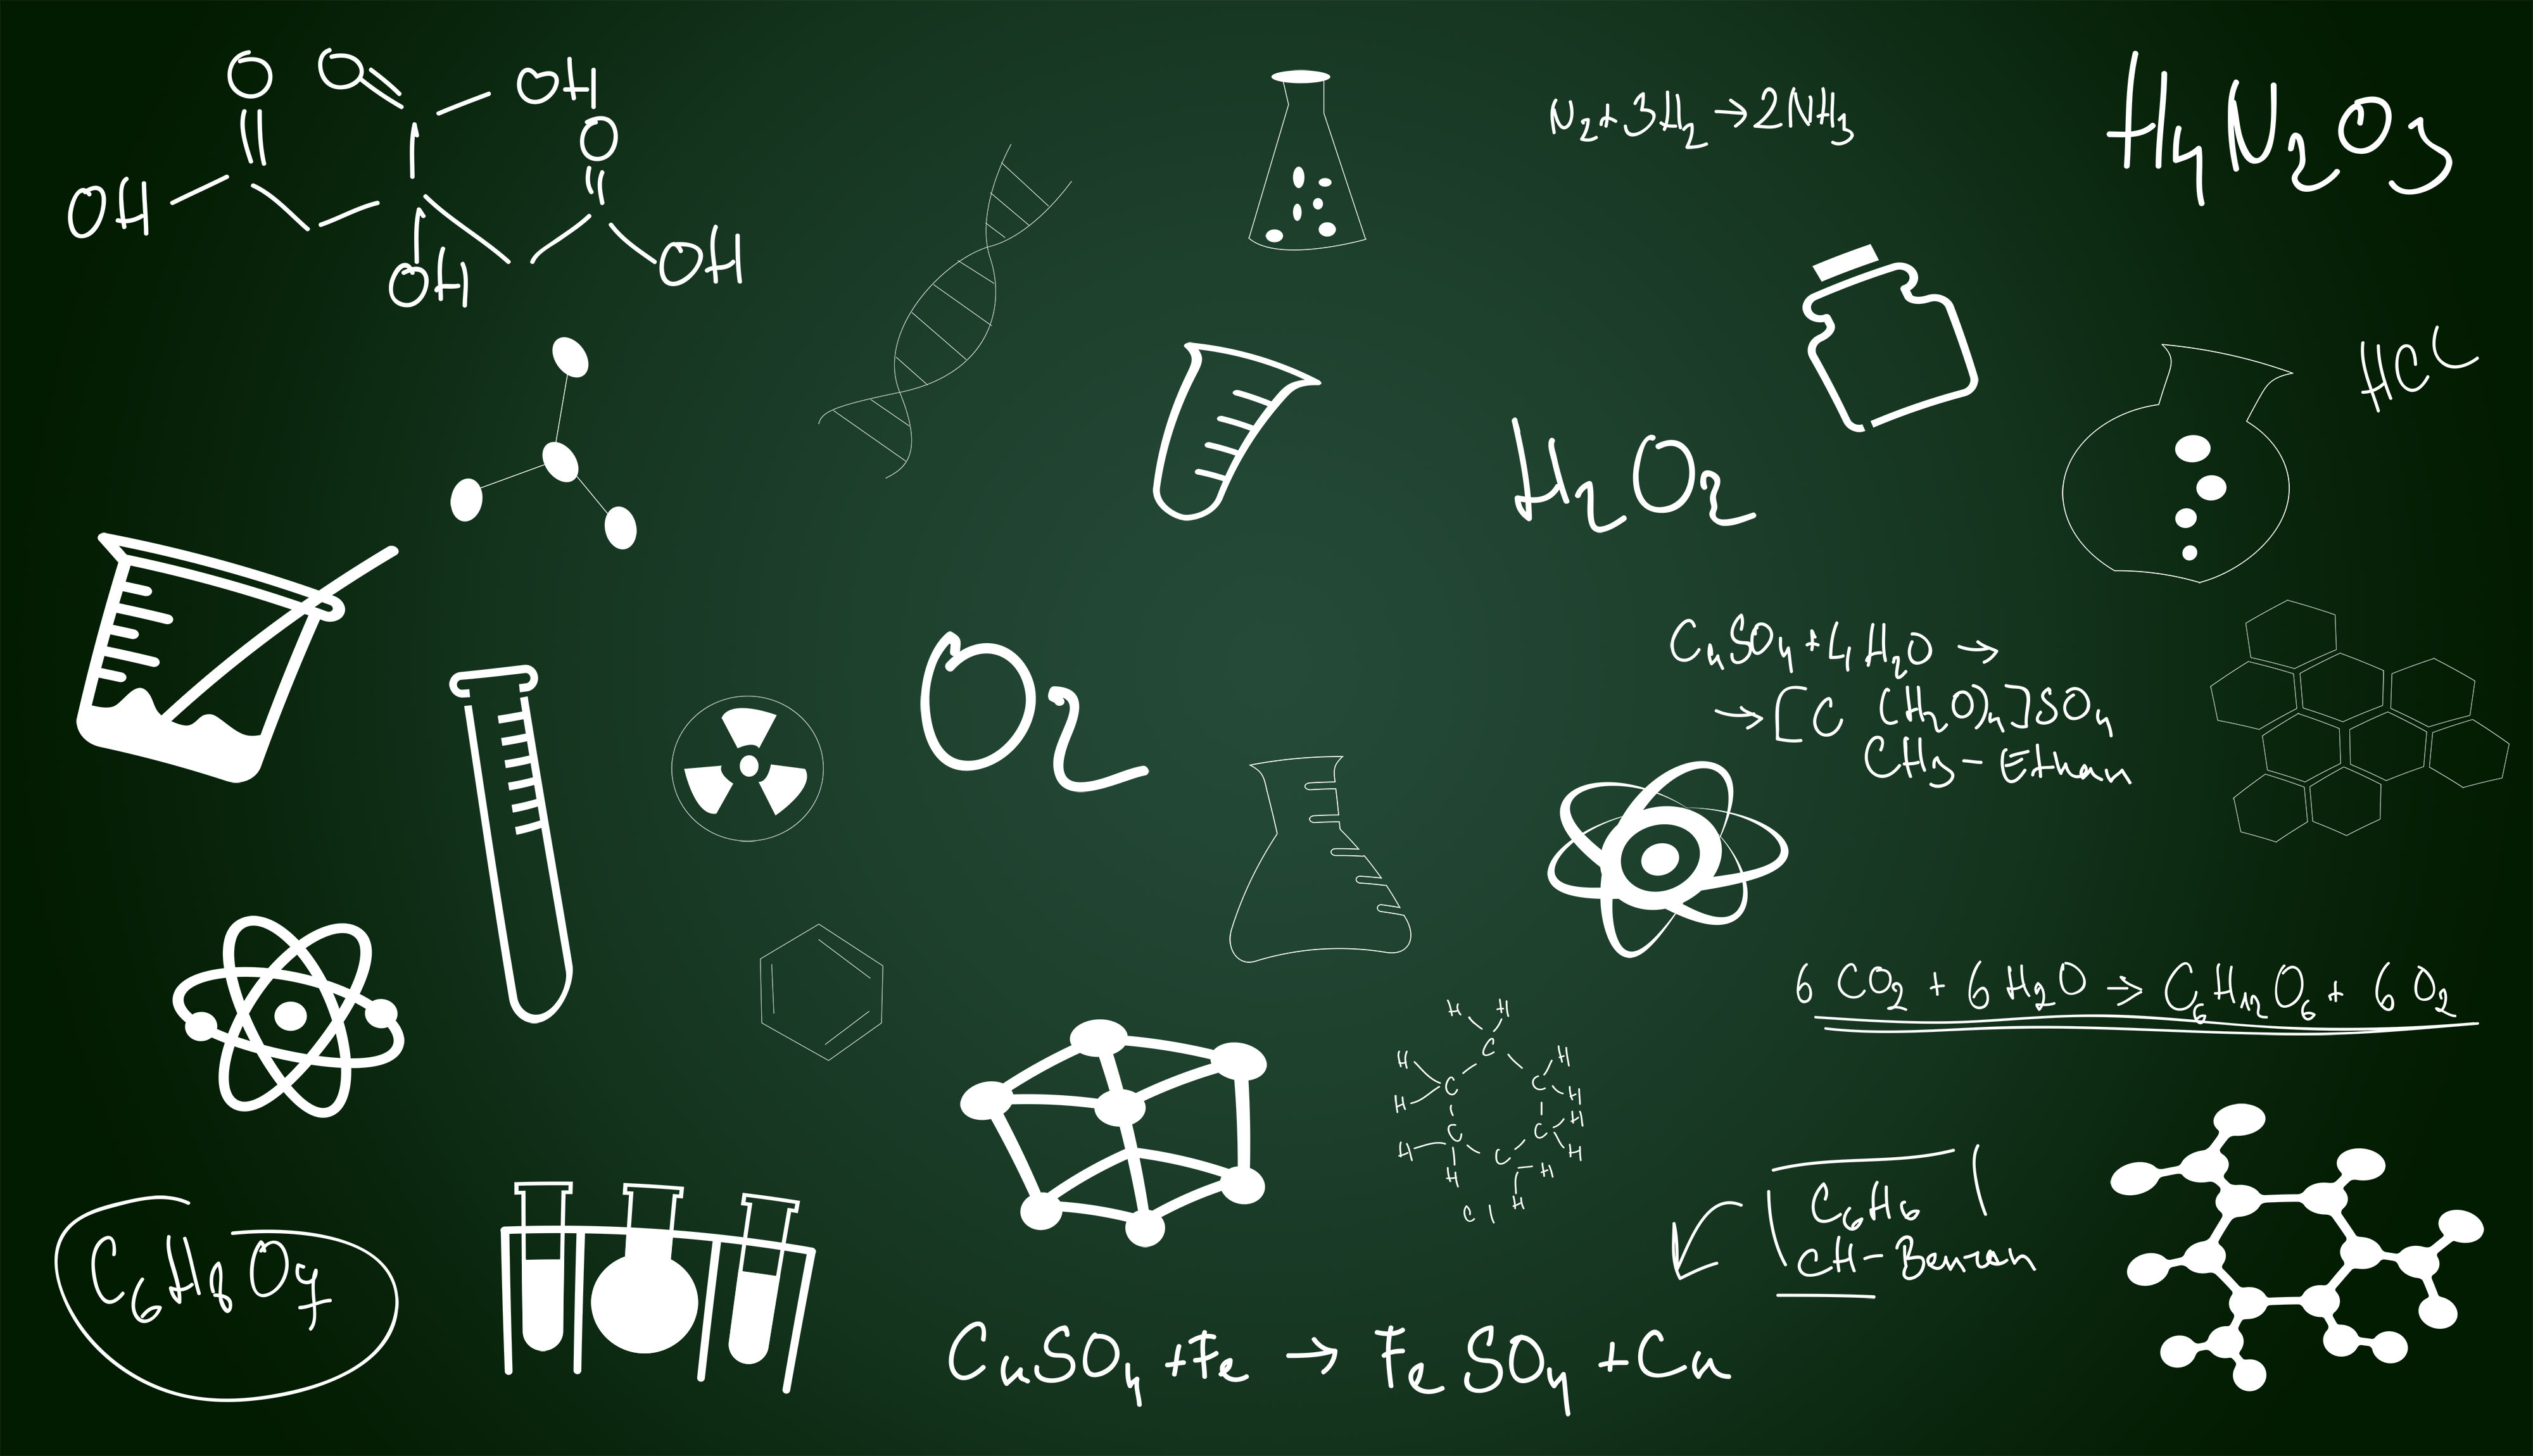 O O OH
O
OH OH
OH
N₂+3H₂→2NH₃
H₄N₂O₃
HCl
H₂O₂
O₂
CuSO₄+4H₂O →
→[C (H₂O)₄]SO₄
CH₃- Ethan
6 CO₂ + 6 H₂O → C₆H₁₂O₆+ 6 O₂
H H
C
H C C H
H H
C C H
H C H
H H
H
C I
C₆H₆
CH- Benzen
C₆H₈O₇
CuSO₄ +Fe → Fe SO₄ +Cu